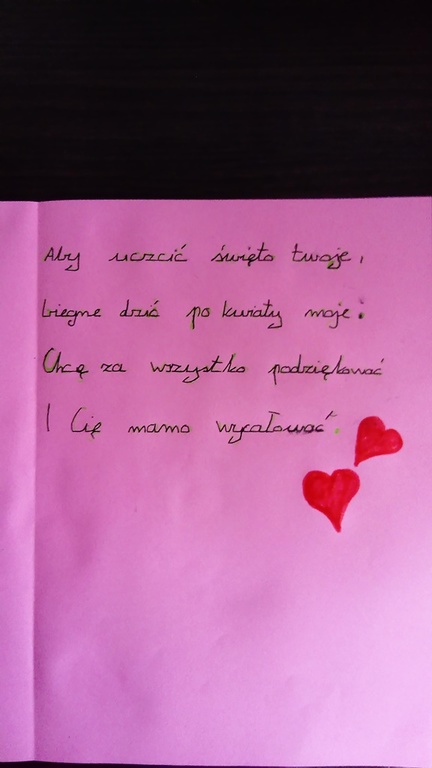 Aby uczcić święto twoje,
biegne dziś po kwiaty moje.
Chcę za wszystko podziękować
I Cię mamo wycałować.